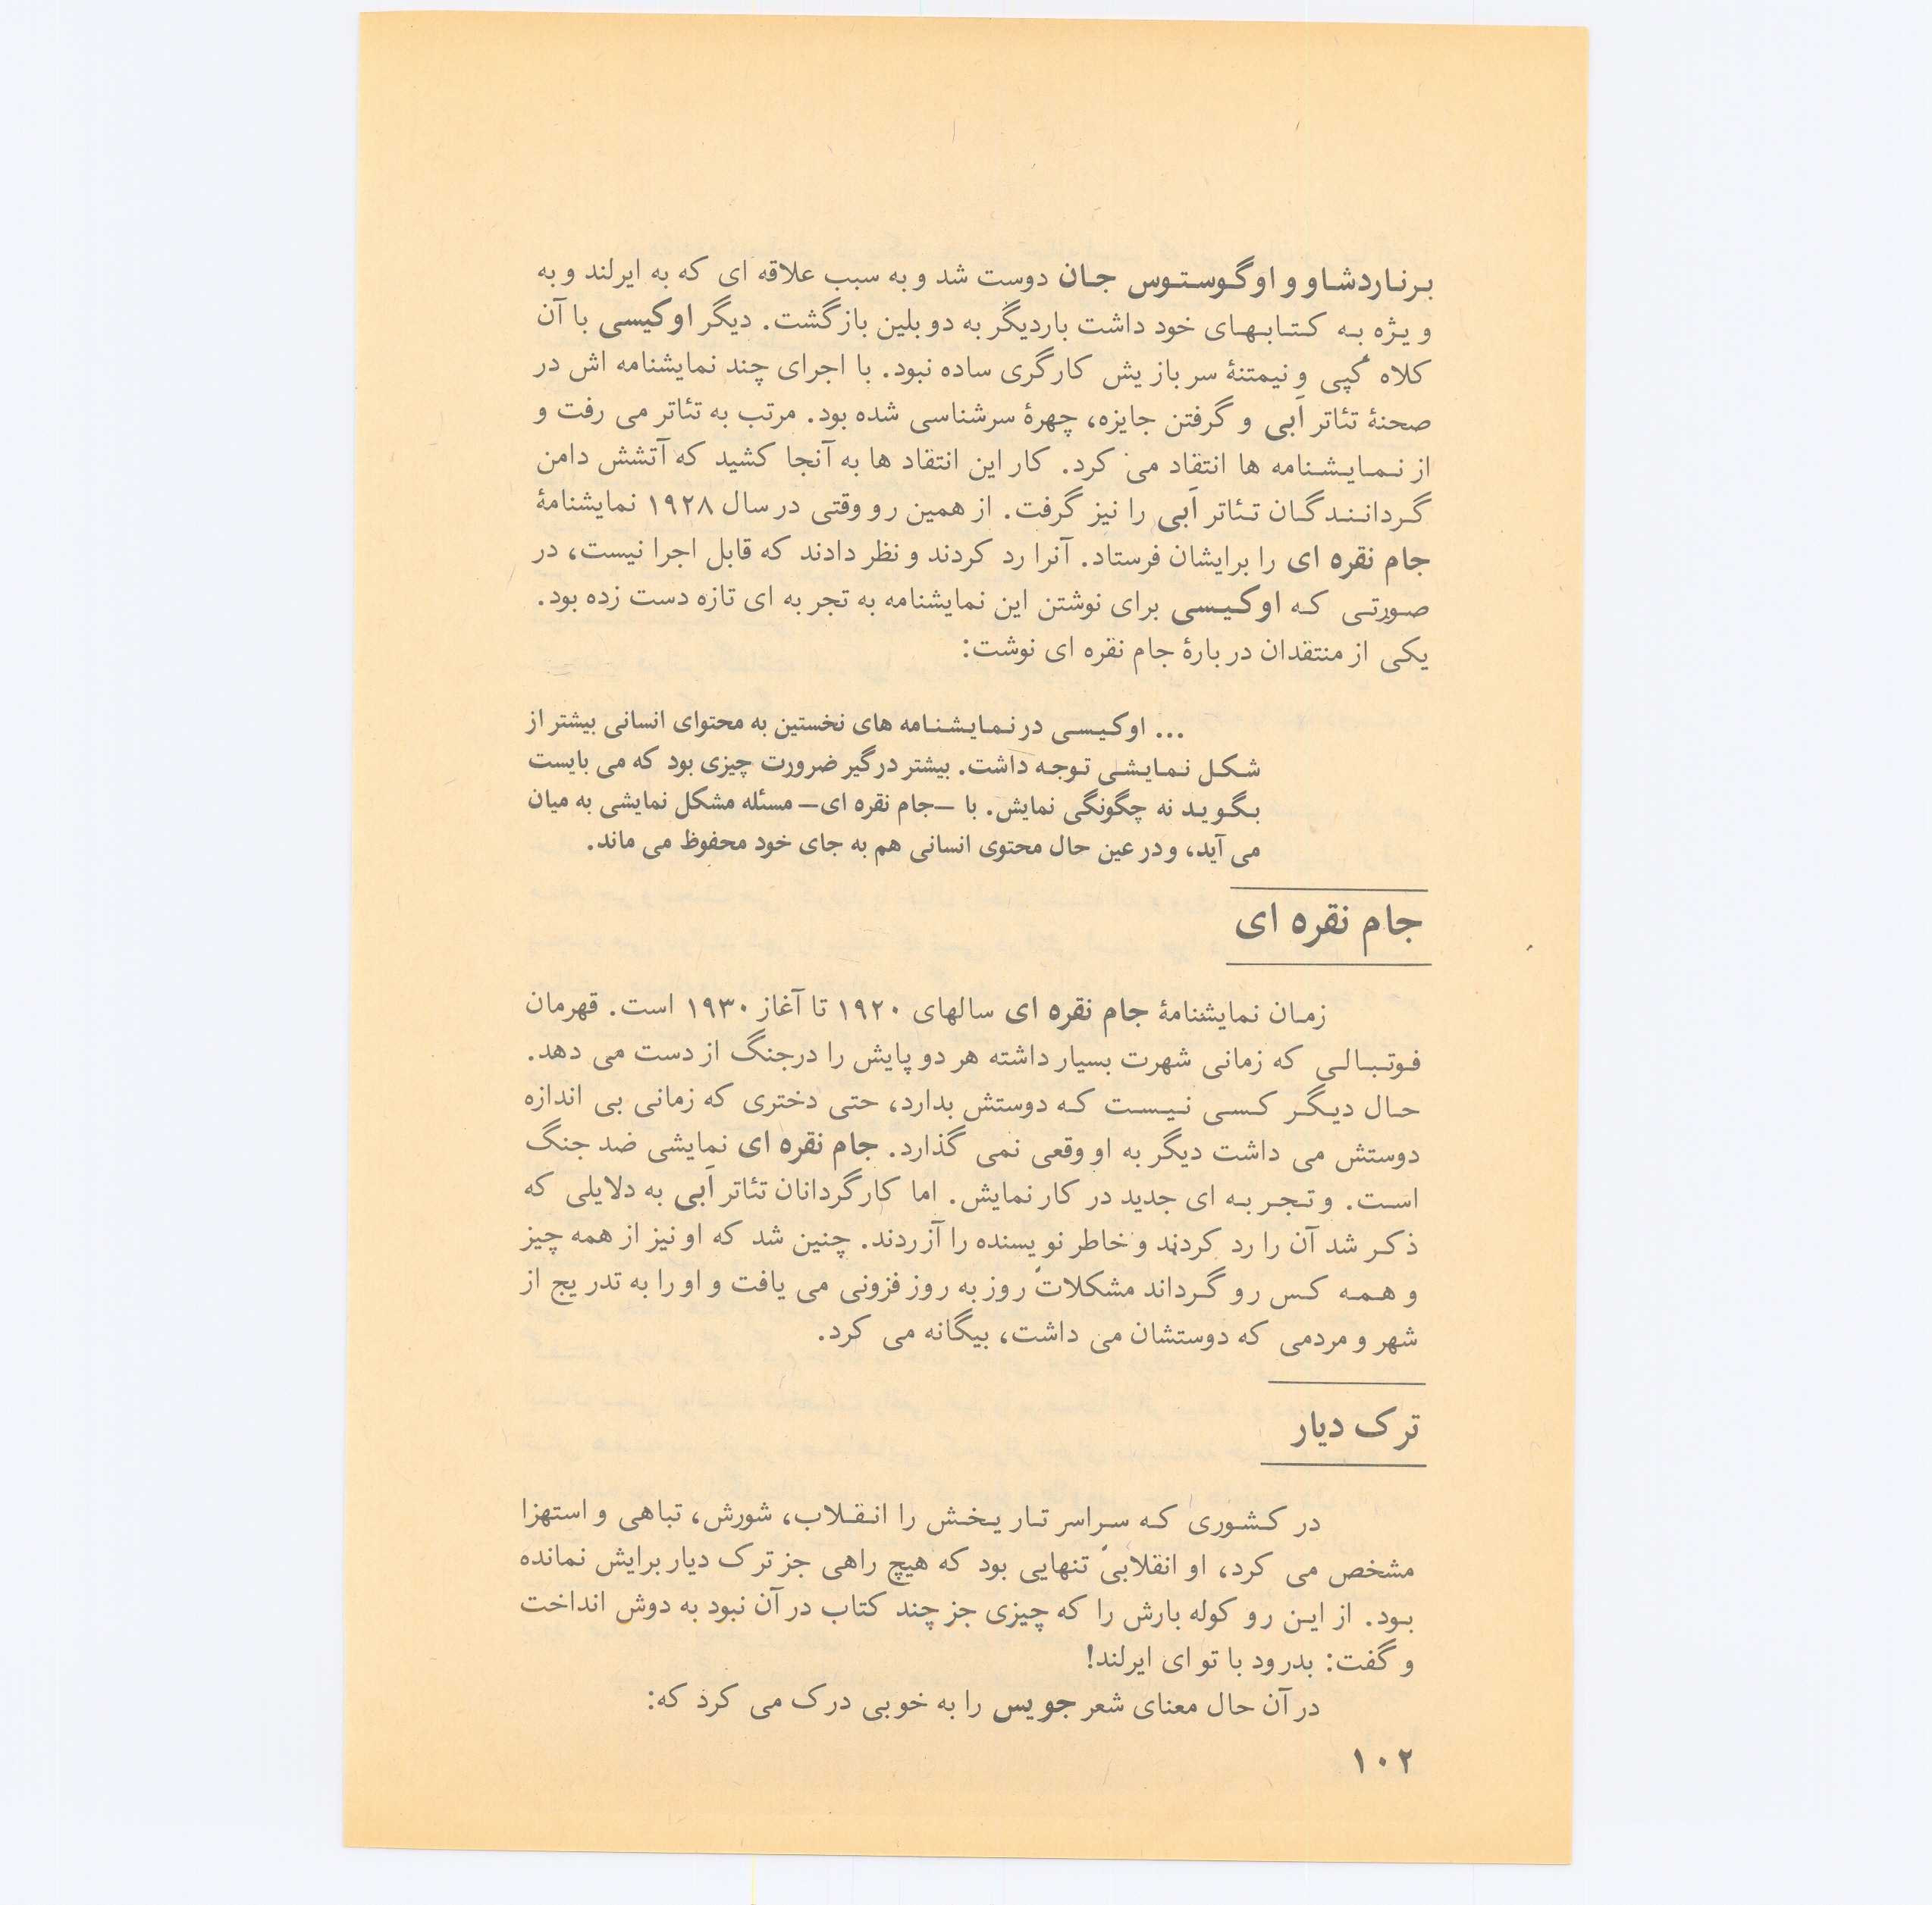 برناردشاو و اوگوستوس جان دوست شد و به سبب علاقه ای که به ایرلند و به
ویژه به کتابهای خود داشت باردیگر به دوبلین بازگشت. دیگر اوکیسی با آن
کلاه کُپی و نیمتنهٔ سربازیش کارگری ساده نبود. با اجرای چند نمایشنامه اش در
صحنهٔ تئاتر اَبی و گرفتن جایزه، چهرهٔ سرشناسی شده بود. مرتب به تئاتر می رفت و
از نمایشنامه ها انتقاد می کرد. کار این انتقاد ها به آنجا کشید که آتشش دامن
گردانندگان تئاتر اَبی را نیز گرفت. از همین رو وقتی در سال ۱۹۲۸ نمایشنامهٔ
جام نقره ای را برایشان فرستاد. آنرا رد کردند و نظر دادند که قابل اجرا نیست، در
صورتی که اوکیسی برای نوشتن این نمایشنامه به تجربه ای تازه دست زده بود.
یکی از منتقدان دربارهٔ جام نقره ای نوشت:
... اوکیسی در نمایشنامه های نخستین به محتوای انسانی بیشتر از
شکل نمایشی توجه داشت. بیشتر درگیر ضرورت چیزی بود که می بایست
بگوید نه چگونگی نمایش. با –جام نقره ای– مسئله مشکل نمایشی به میان
می آید، و در عین حال محتوی انسانی هم به جای خود محفوظ می ماند.
جام نقره ای
زمان نمایشنامهٔ جام نقره ای سالهای ۱۹۲۰ تا آغاز ۱۹۳۰ است. قهرمان
فوتبالی که زمانی شهرت بسیار داشته هر دو پایش را درجنگ از دست می دهد.
حال دیگر کسی نیست که دوستش بدارد، حتی دختری که زمانی بی اندازه
دوستش می داشت دیگر به او وقعی نمی گذارد. جام نقره ای نمایشی ضد جنگ
است. و تجربه ای جدید در کار نمایش. اما کارگردانان تئاتر اَبی به دلایلی که
ذکر شد آن را رد کردند و خاطر نویسنده را آزردند. چنین شد که او نیز از همه چیز
و همه کس رو گرداند مشکلاتْ روز به روز فزونی می یافت و او را به تدریج از
شهر و مردمی که دوستشان می داشت، بیگانه می کرد.
ترک دیار
در کشوری که سراسر تاریخش را انقلاب، شورش، تباهی و استهزا
مشخص می کرد، او انقلابیْ تنهایی بود که هیچ راهی جز ترک دیار برایش نمانده
بود. از این رو کوله بارش را که چیزی جز چند کتاب در آن نبود به دوش انداخت
و گفت: بدرود با تو ای ایرلند!
در آن حال معنای شعر جویس را به خوبی درک می کرد که:
۱۰۲